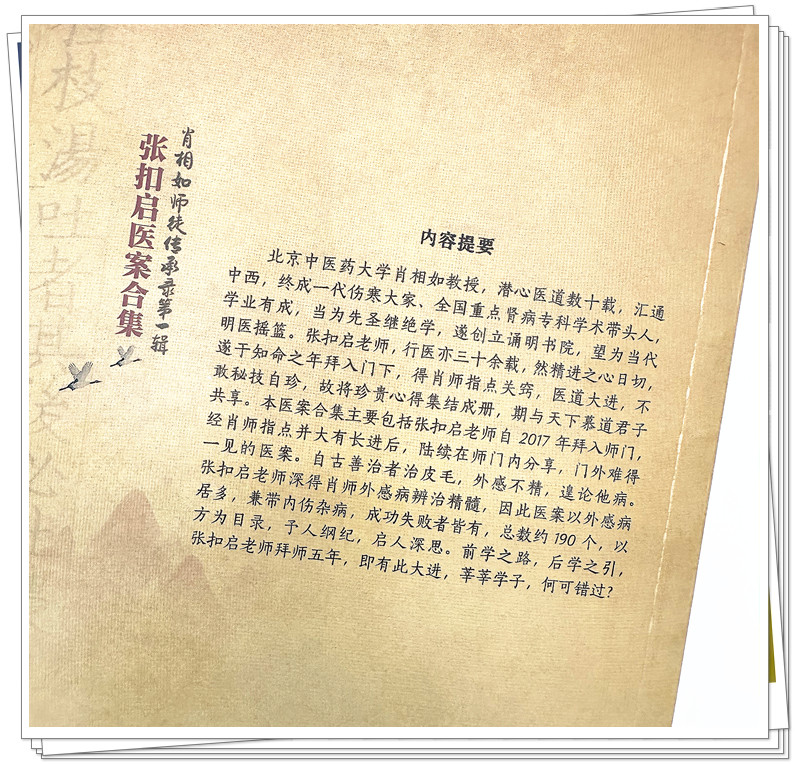 肖相如师徒传承录第一辑
张扣启医案合集
内容提要
北京中医药大学肖相如教授，潜心医道数十载，汇通
中西，终成一代伤寒大家、全国重点肾病专科学术带头人，
学业有成，当为先圣继绝学，遂创立诵明书院，望为当代
明医摇篮。张扣启老师，行医亦三十余载，然精进之心日切，
遂于知命之年拜入门下，得肖师指点关窍，医道大进，不
敢秘技自珍，故将珍贵心得集结成册，期与天下慕道君子
共享。本医案合集主要包括张扣启老师自 2017 年拜入师门，
经肖师指点并大有长进后，陆续在师门内分享，门外难得
一见的医案。自古善治者治皮毛，外感不精，遑论他病。
张扣启老师深得肖师外感病辨治精髓，因此医案以外感病
居多，兼带内伤杂病，成功失败者皆有，总数约 190 个，以
方为目录，予人纲纪，启人深思。前学之路，后学之引，
张扣启老师拜师五年，即有此大进，莘莘学子，何可错过？
桂枝湯吐者其後必吐